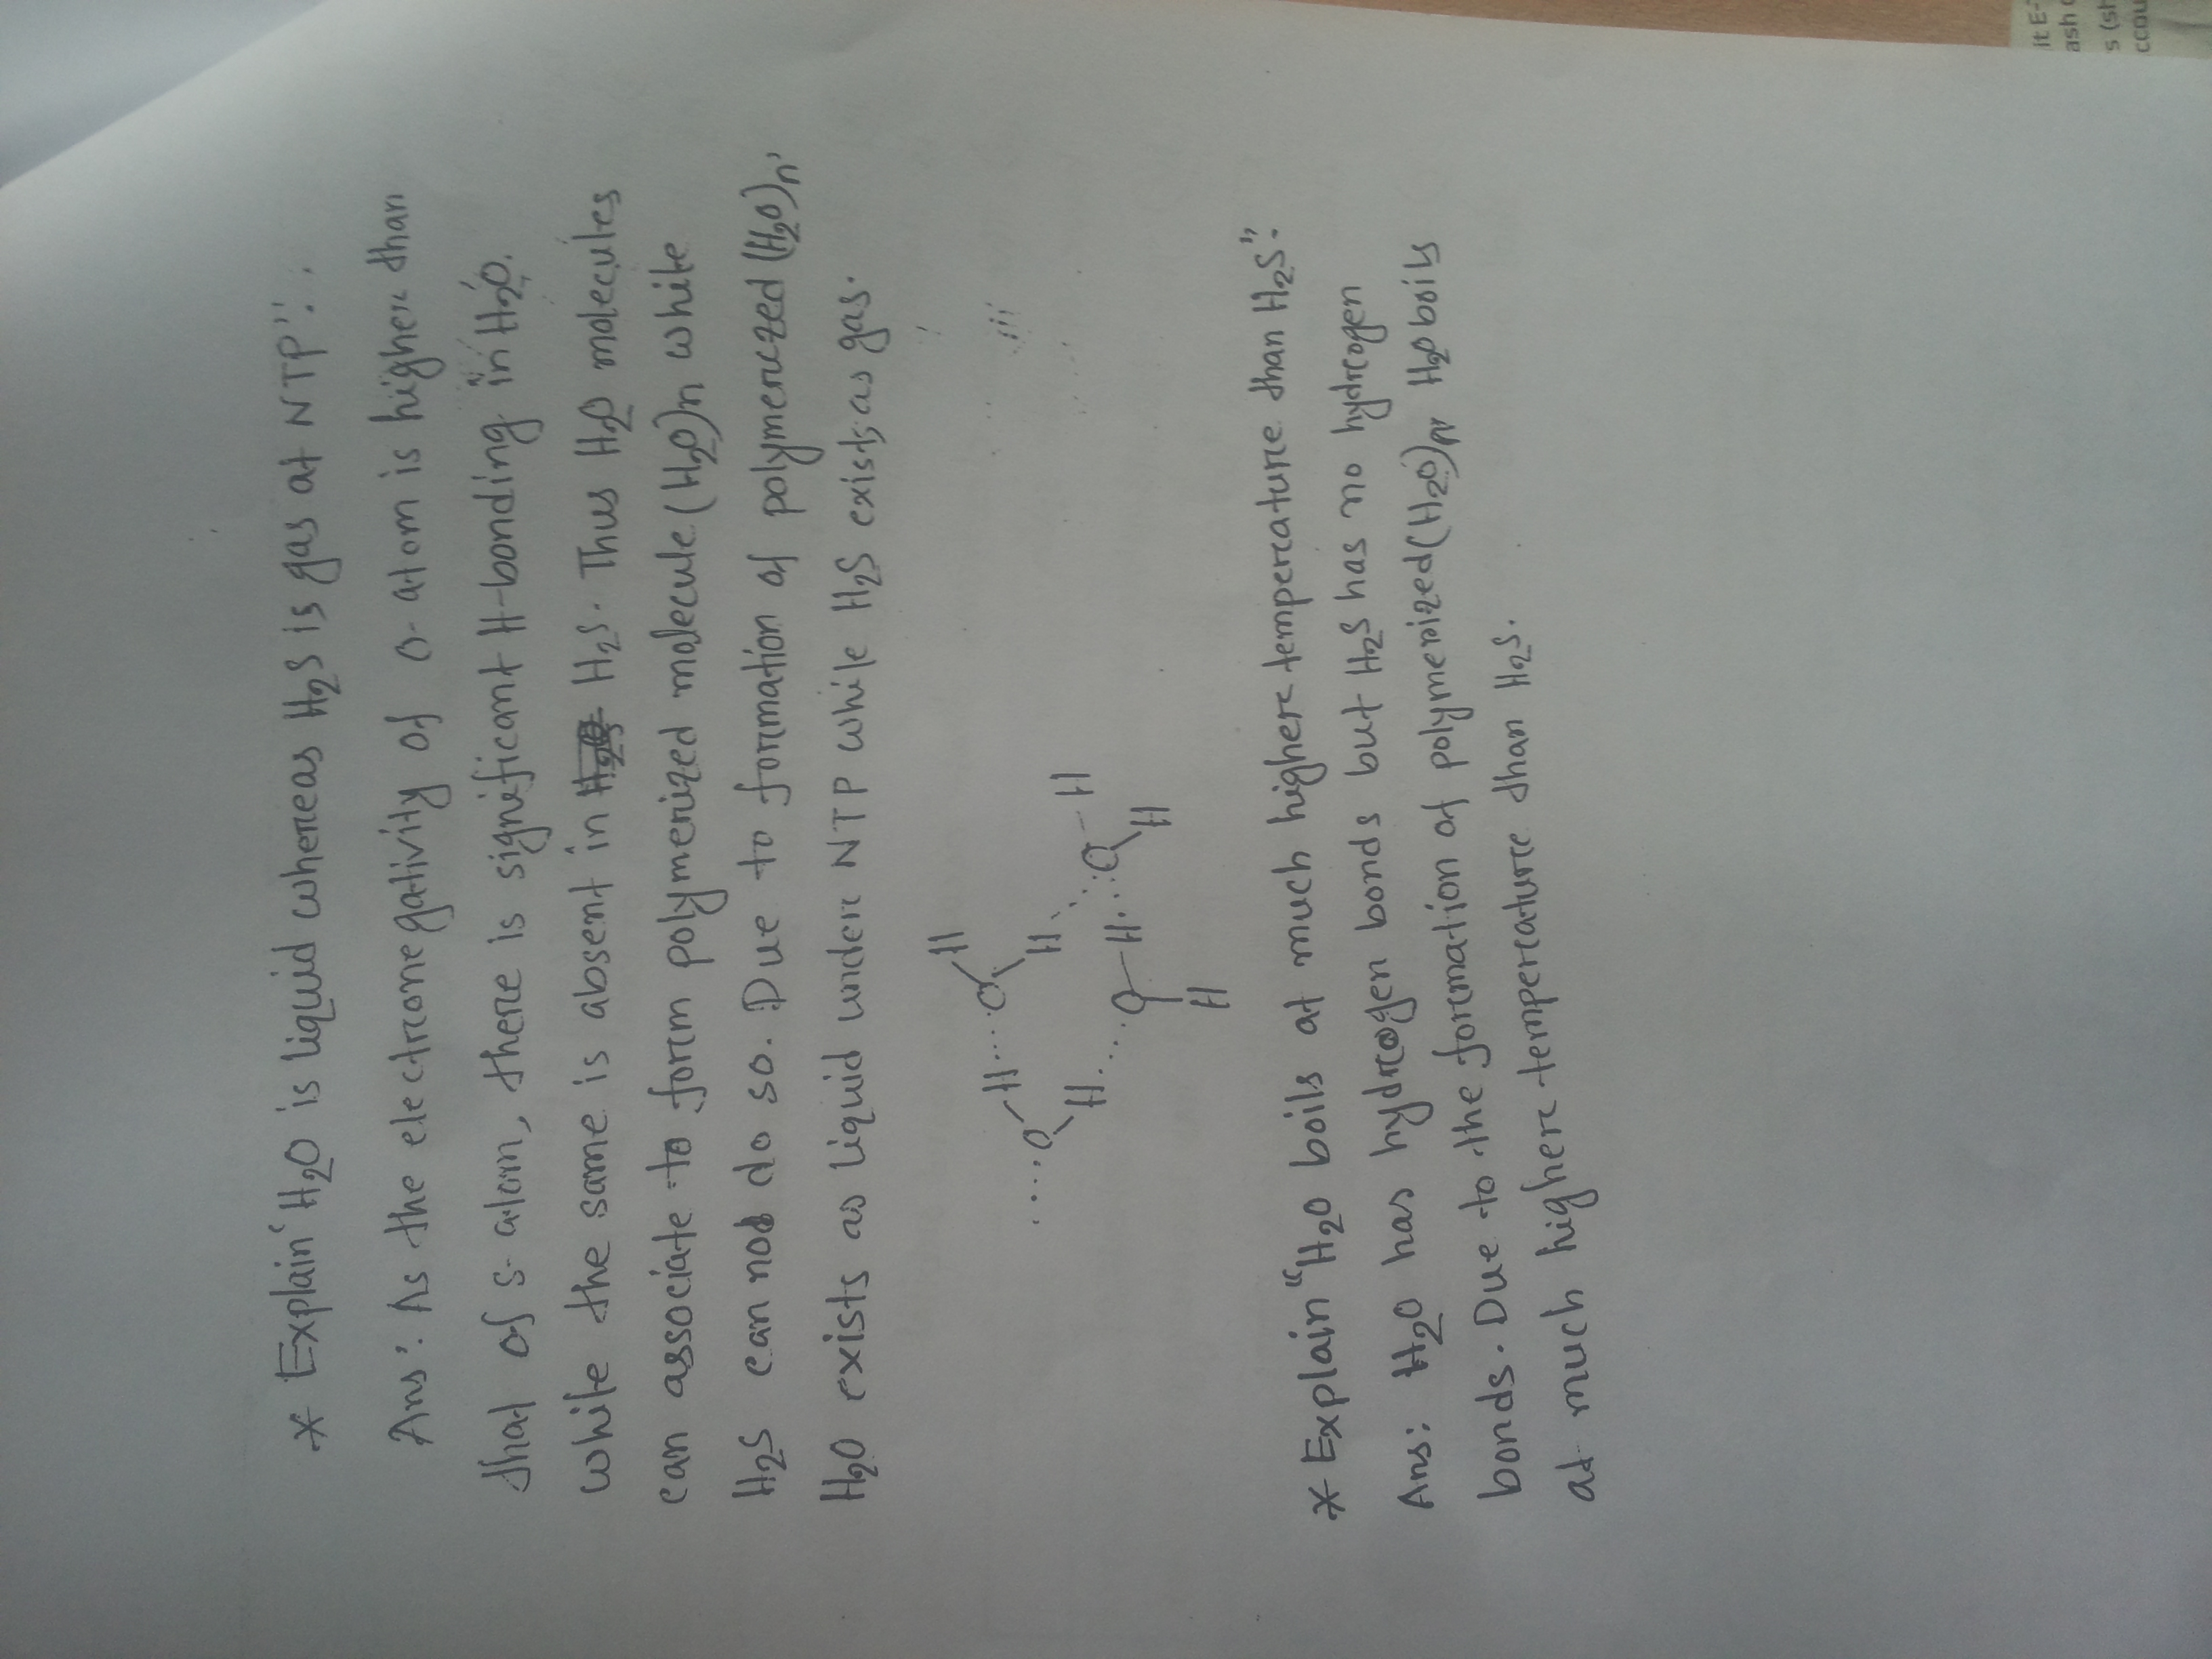 * Explain "H₂O is liquid whereas H₂S is gas at NTP".
Ans: As the electronegativity of O-atom is higher than
that of S-atom, there is significant H-bonding in H₂O.
while the same is absent in H₂S. Thus H₂O molecules
can associate to form polymerized molecule (H₂O)n while
H₂S can not do so. Due to formation of polymerized (H₂O)n,
H₂O exists as liquid under NTP while H₂S exists as gas.
H H
O H O H O H
H H O H
* Explain "H₂O boils at much higher temperature than H₂S".
Ans: H₂O has hydrogen bonds but H₂S has no hydrogen
bonds. Due to the formation of polymerized (H₂O)n, H₂O boils
at much higher temperature than H₂S.
it E-
ash
s (sh
ccou